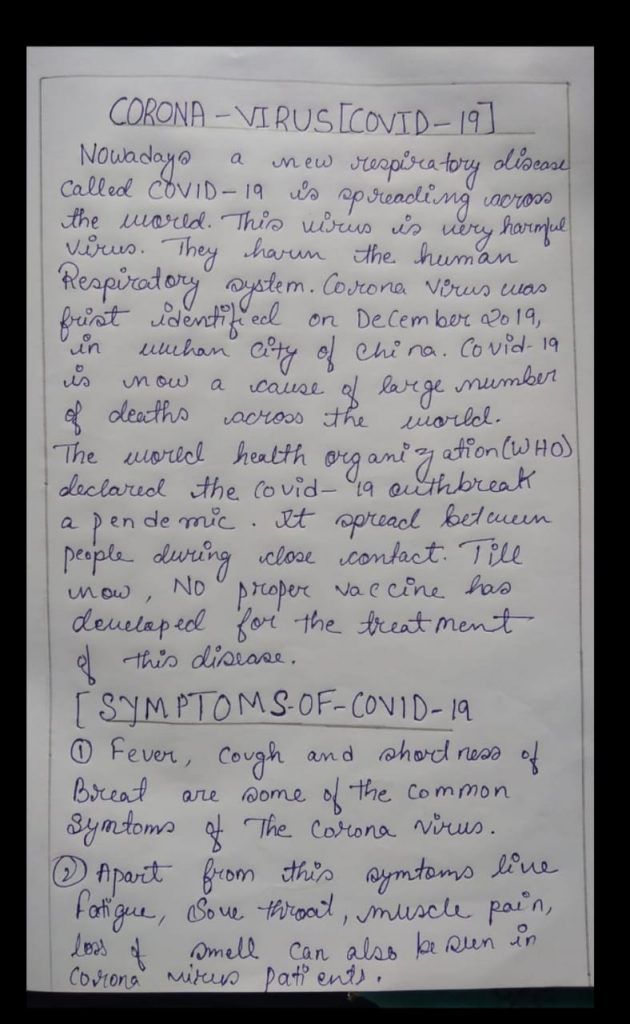 CORONA-VIRUS[COVID-19]
Nowadays a new respiratory disease
Called COVID-19 is spreading across
the world. This virus is very harmful
Virus. They harm the human
Respiratory system. Corona Virus was
frist identified on December 2019,
in wuhan City of China. Covid-19
is now a cause of large number
of deaths across the world.
The world health organization(WHO)
declared the Covid-19 outhbreak
a pendemic. It spread between
people during close contact. Till
now, No proper vaccine has
developed for the treatment
of this disease.
[SYMPTOMS-OF-COVID-19
① Fever, Cough and shortness of
Breat are some of the common
Symtoms of The Corona Virus.
② Apart from this symtoms live
fatigue, Sove throat, muscle pain,
loss of smell can also be seen in
Corona virus patients.